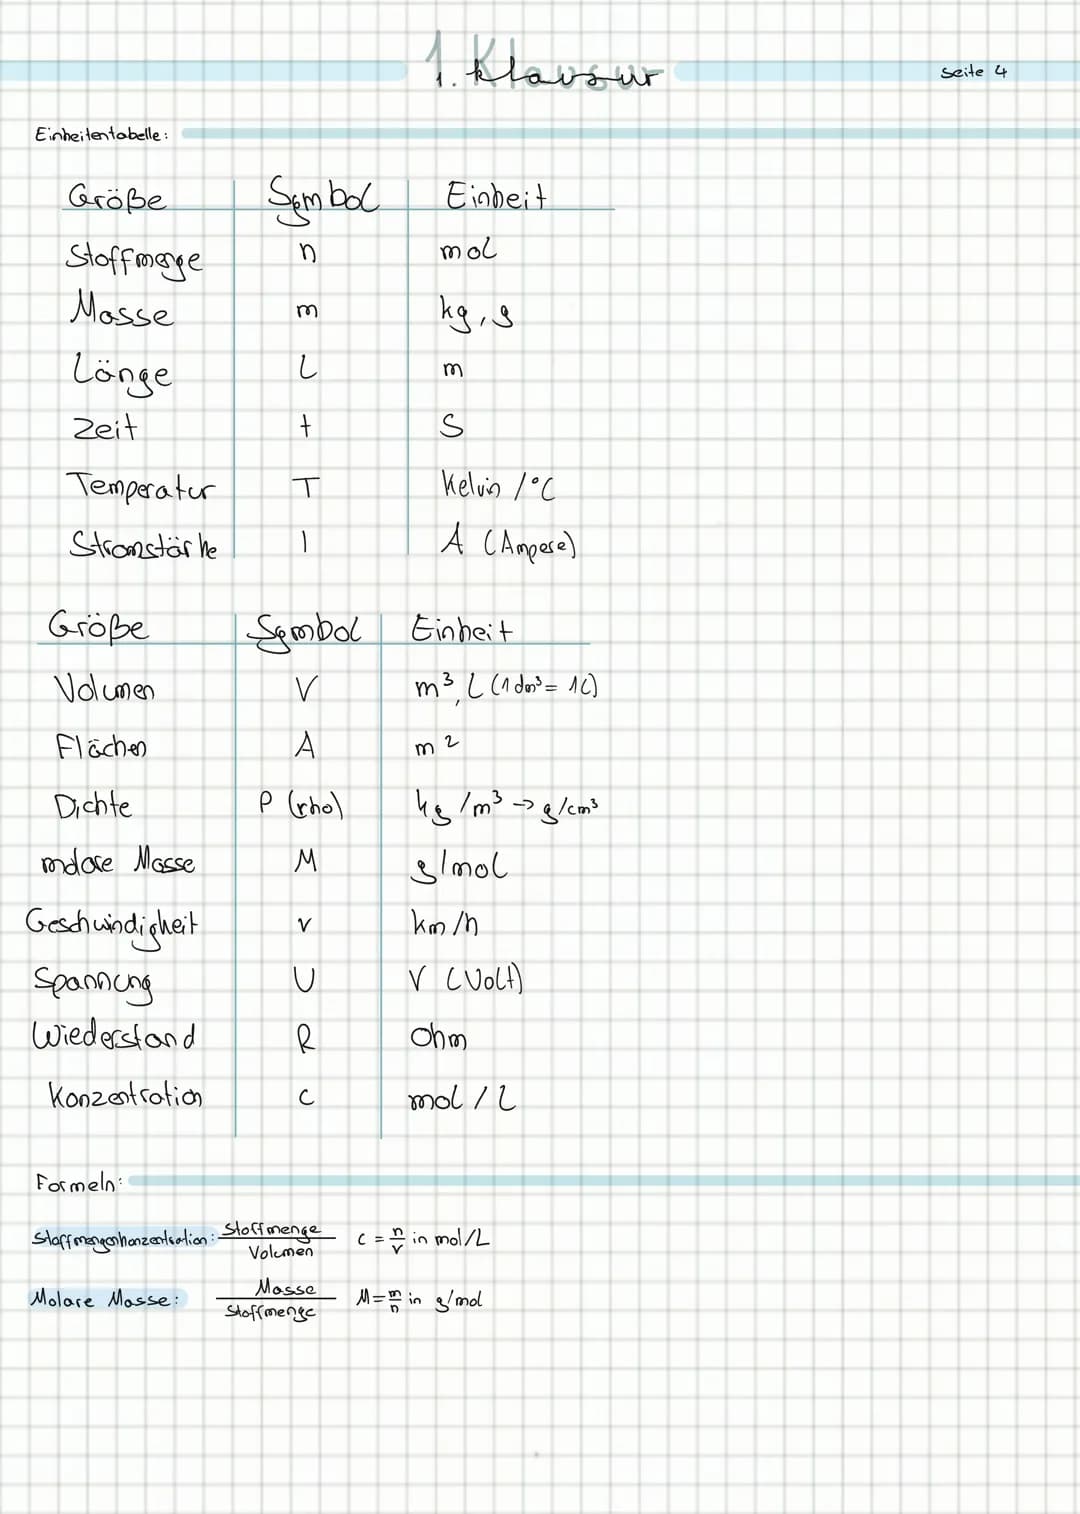 1. Klausur
Seite 4
Einheitentabelle:
Größe Symbol Einheit
Stoffmenge n mol
Masse m kg, g
Länge l m
Zeit t s
Temperatur T Kelvin /°C
Stromstärke I A (Ampere)
Größe Symbol Einheit
Volumen V m³, L (1dm³ = 1L)
Flächen A m²
Dichte P (rho) kg/m³ → g/cm³
molare Masse M g/mol
Geschwindigkeit v km/h
Spannung U V (Volt)
Wiederstand R Ohm
Konzentration c mol/L
Formeln:
Stoffmengenkonzentration: Stoffmenge/Volumen c = n/V in mol/L
Molare Masse: Masse/Stoffmenge M = m/n in g/mol